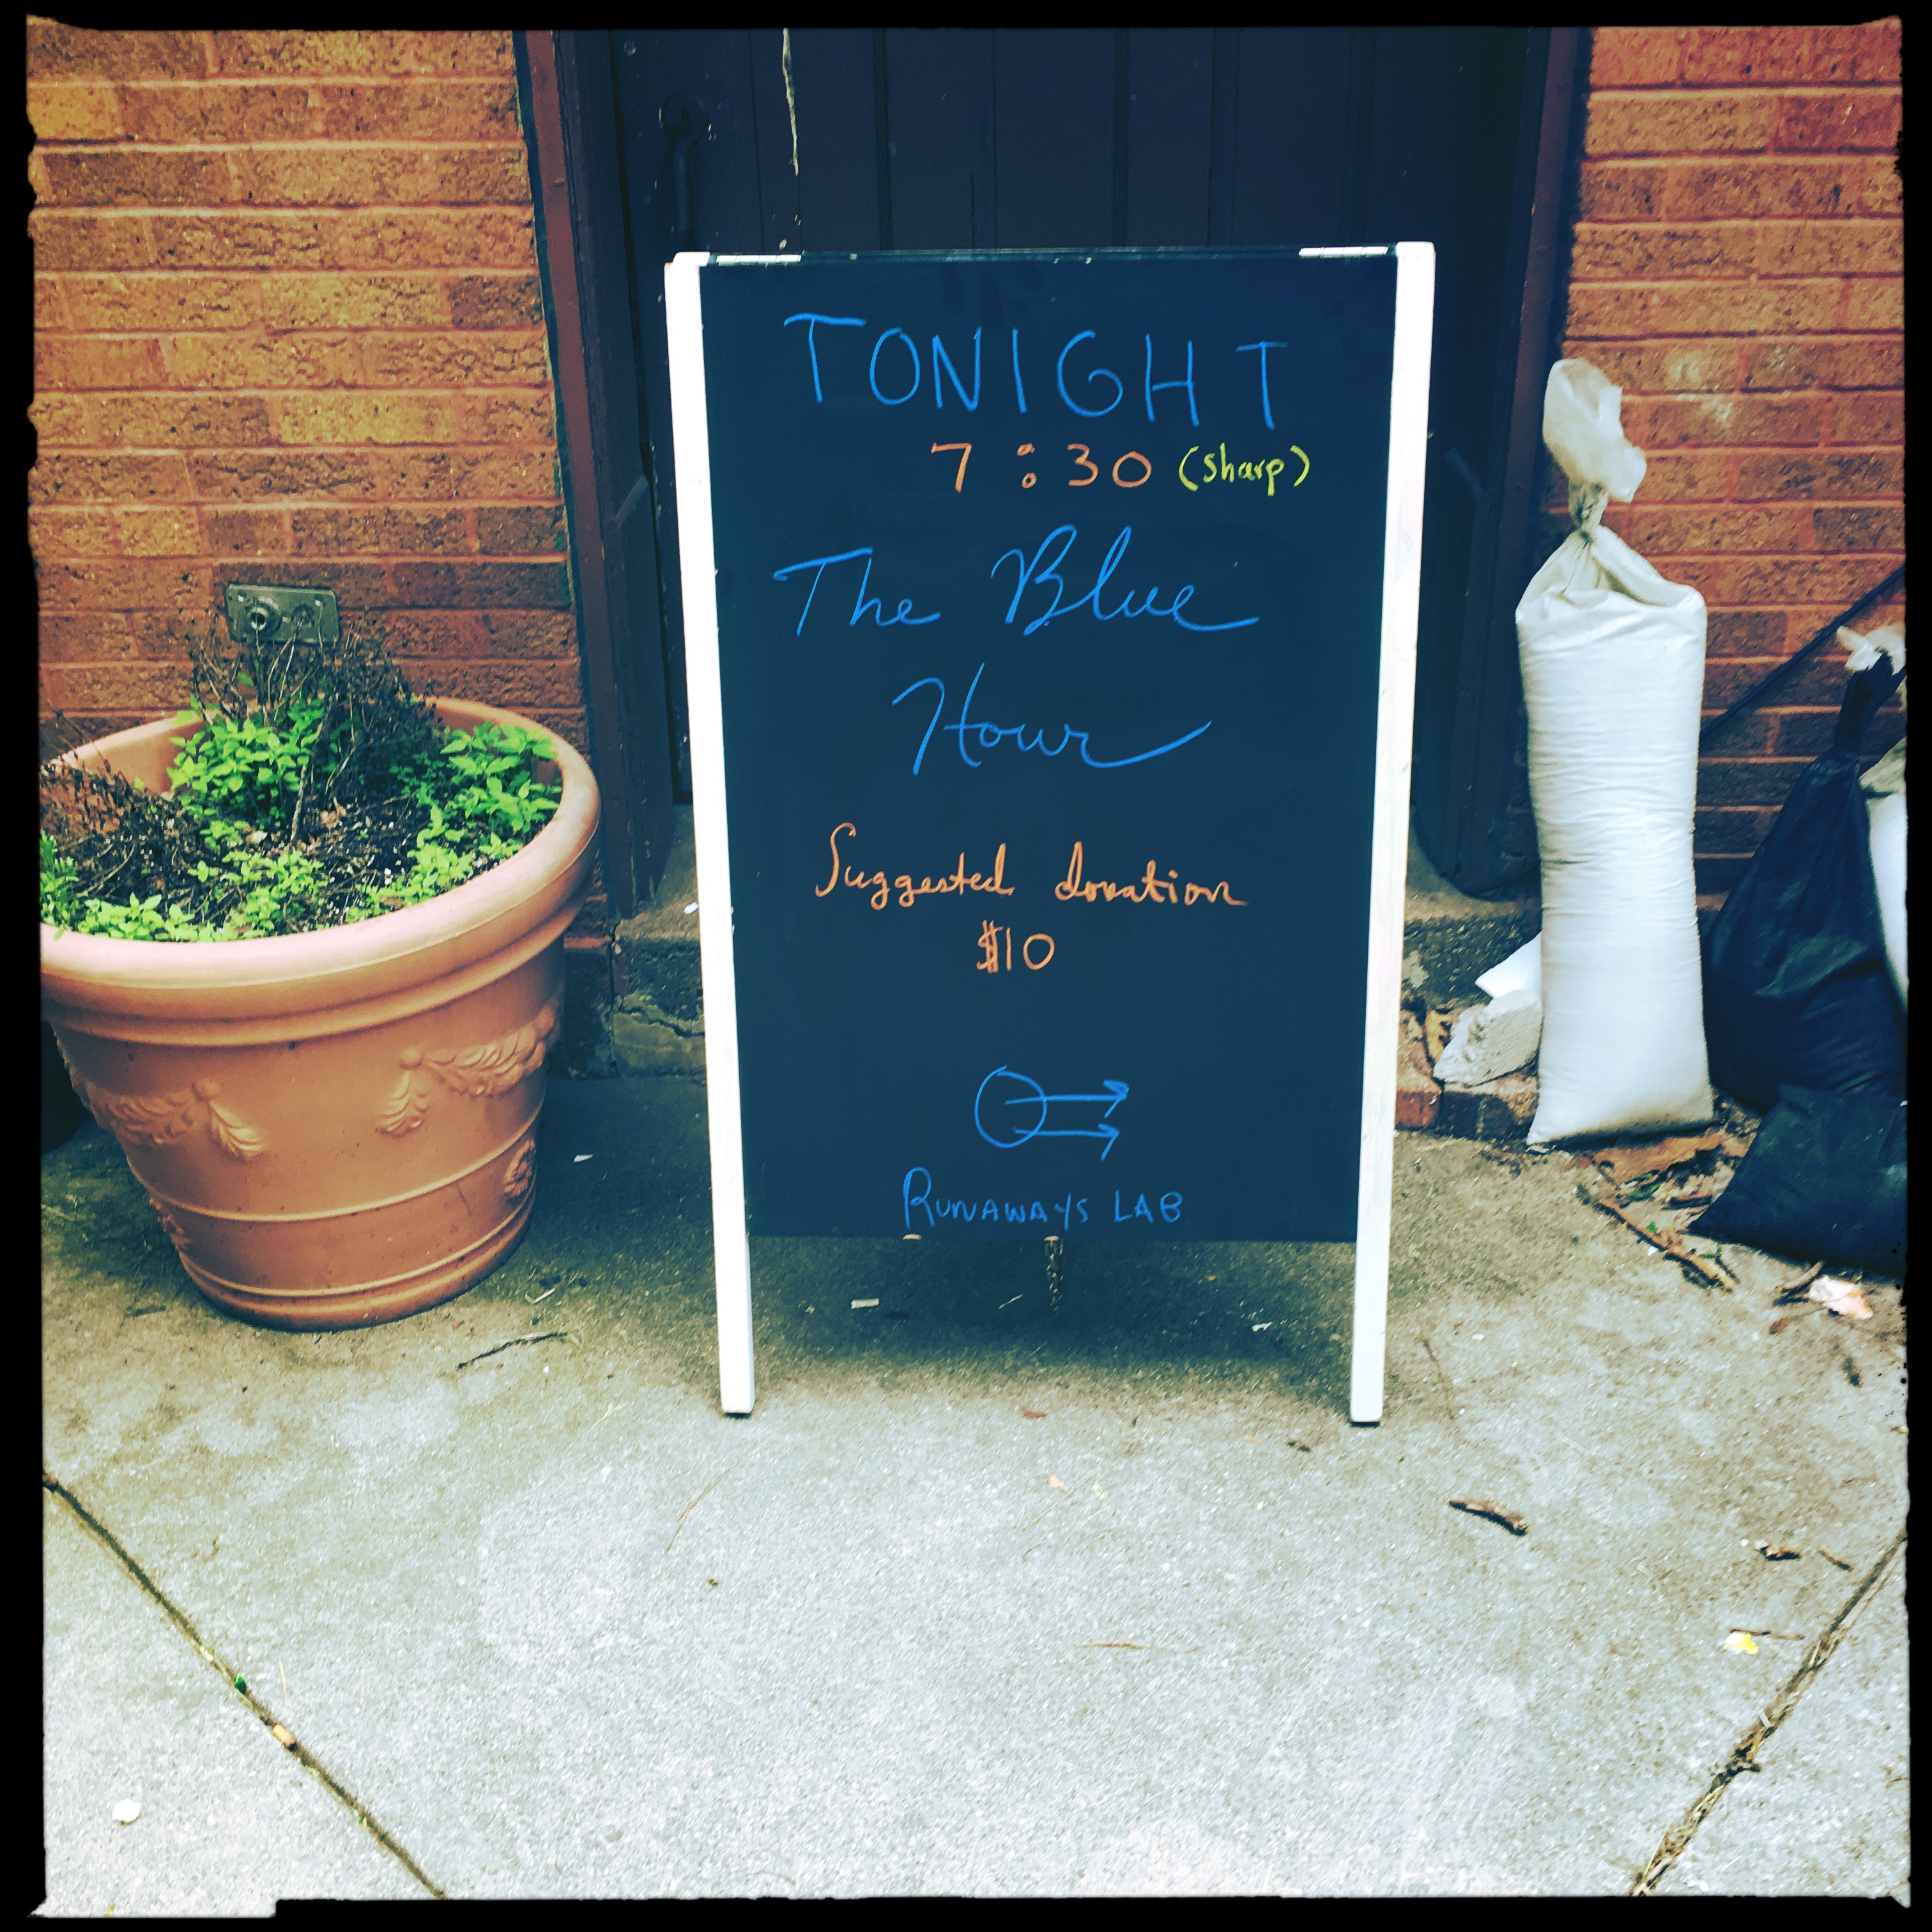 TONIGHT
7:30 (sharp)
The Blue
Hour
Suggested donation
$10
RUNAWAYS LAB